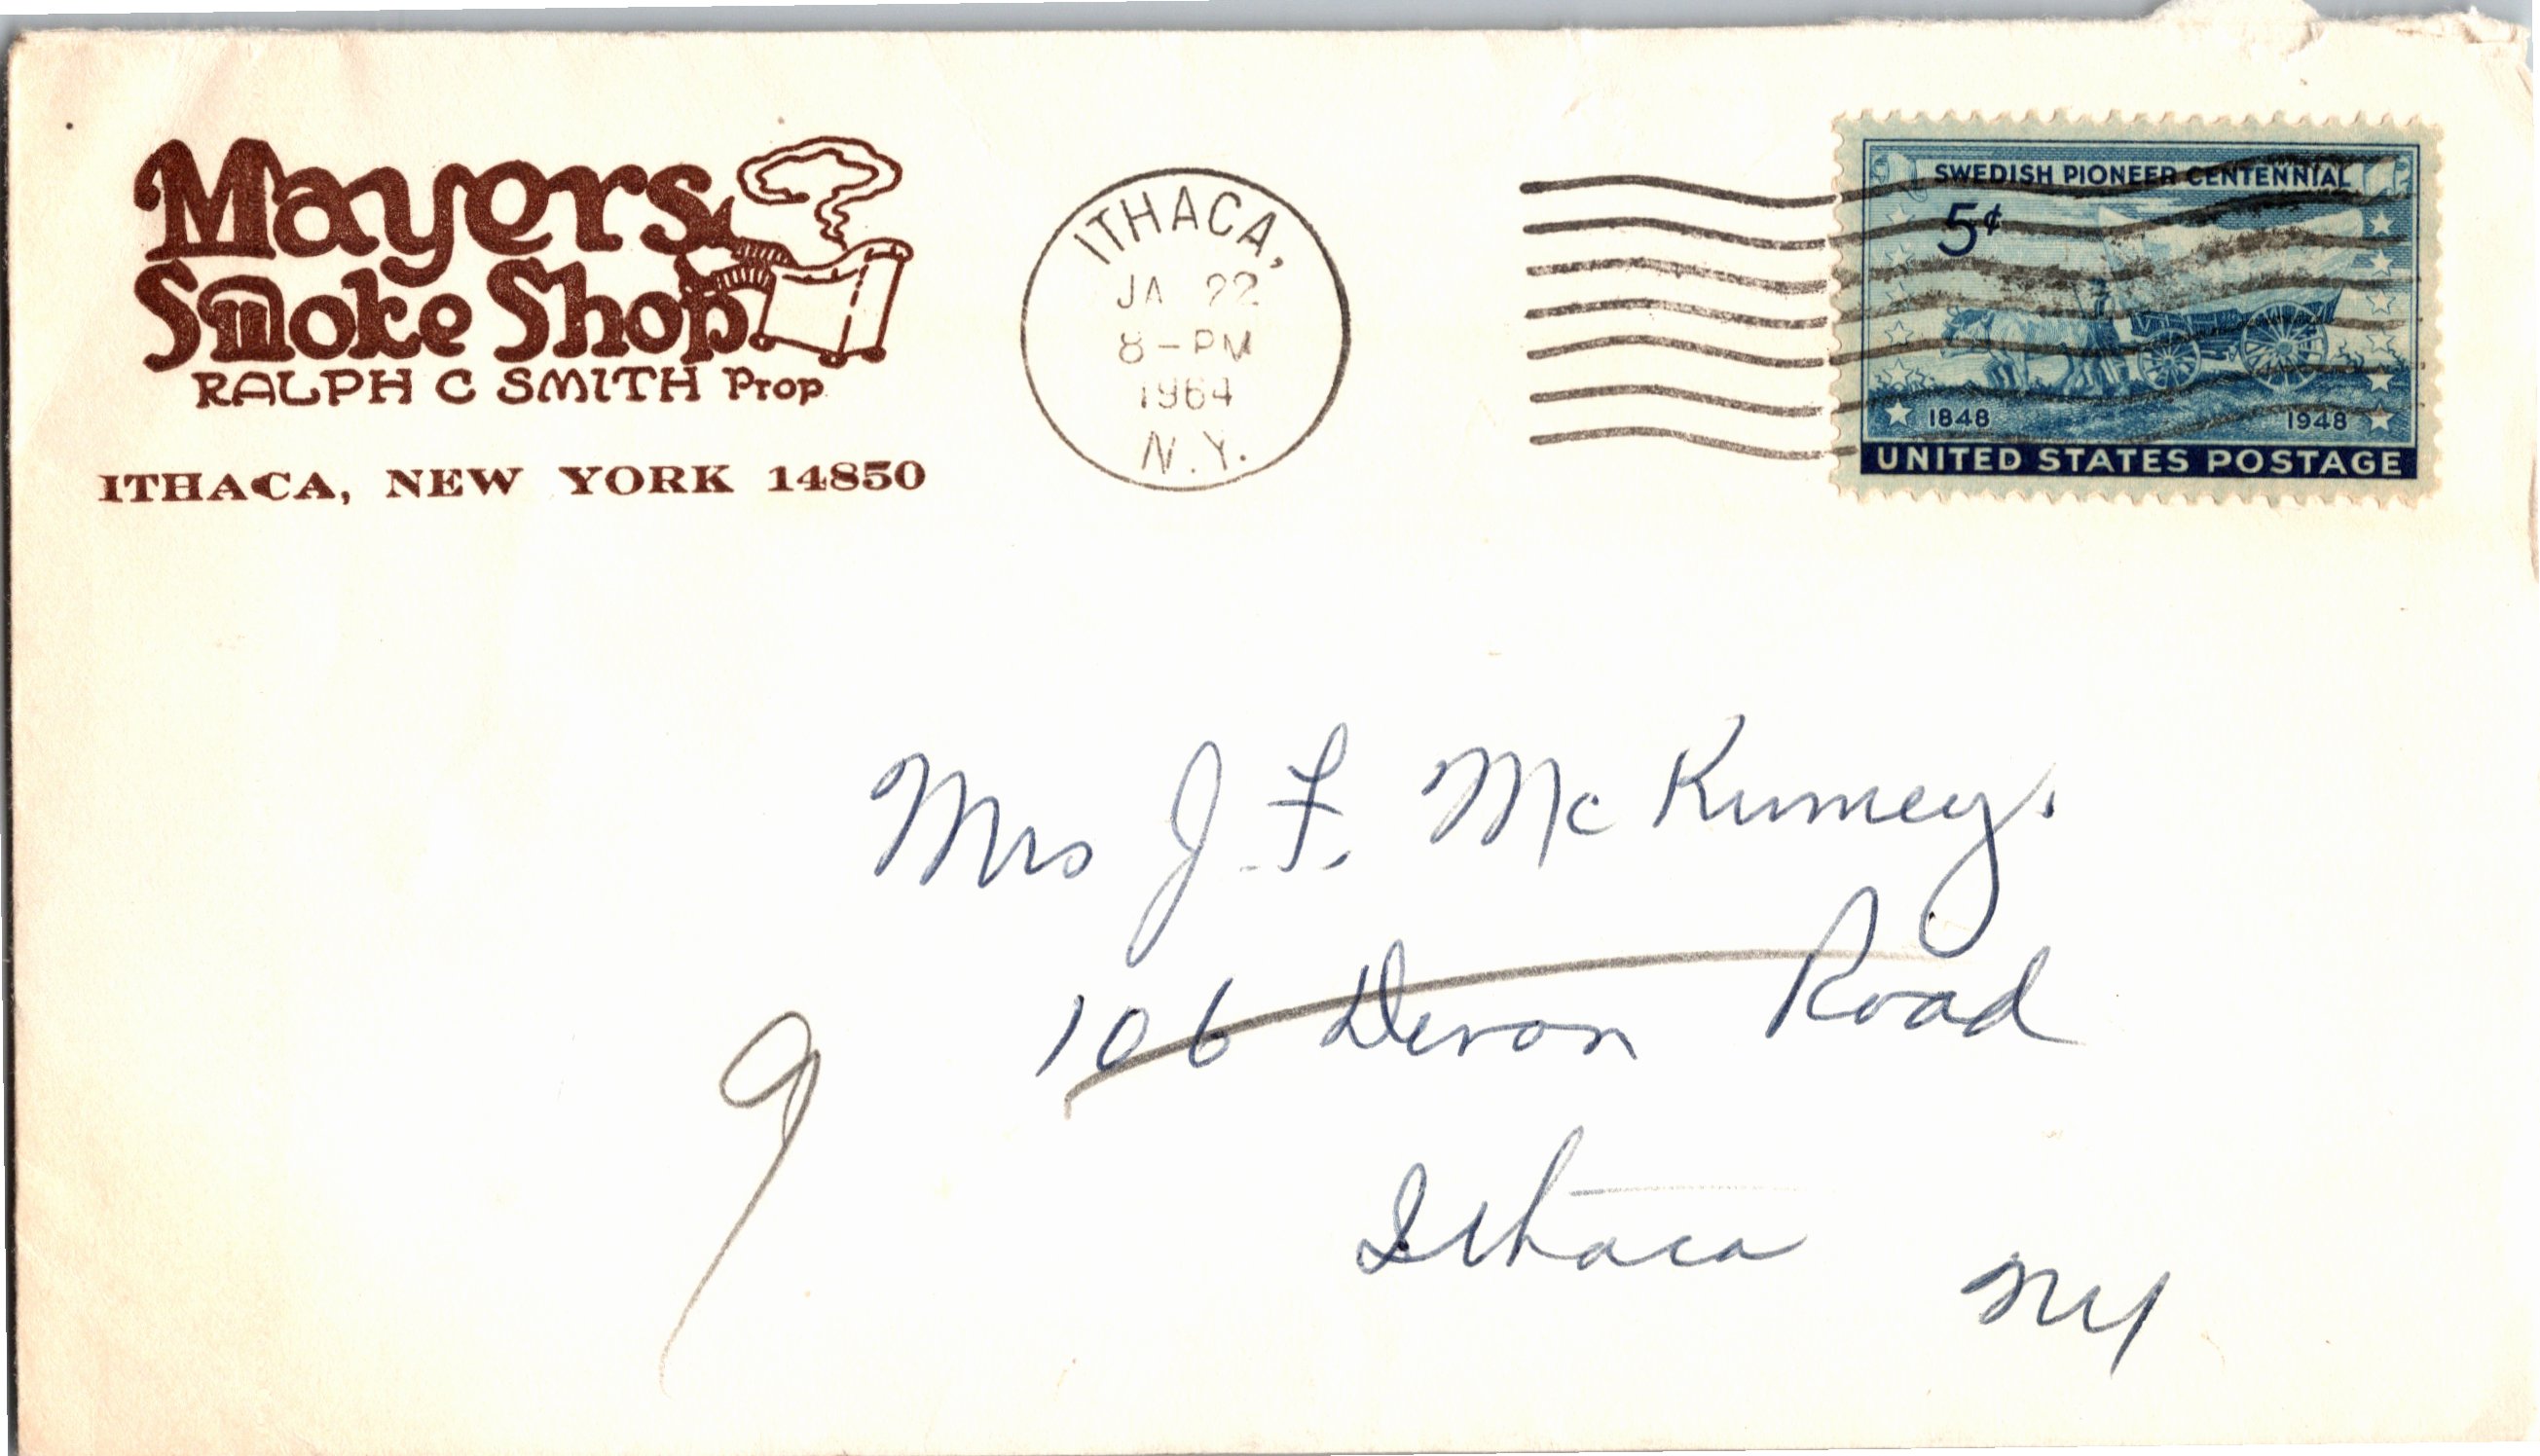 Mayers
Smoke Shop
RALPH C SMITH Prop.
ITHACA, NEW YORK 14850
ITHACA,
JA 22
8-PM
1964
N.Y.
SWEDISH PIONEER CENTENNIAL
5¢
1848 1948
UNITED STATES POSTAGE
Mrs J. F. McKinney.
106 Devon Road
9
Ithaca
NY